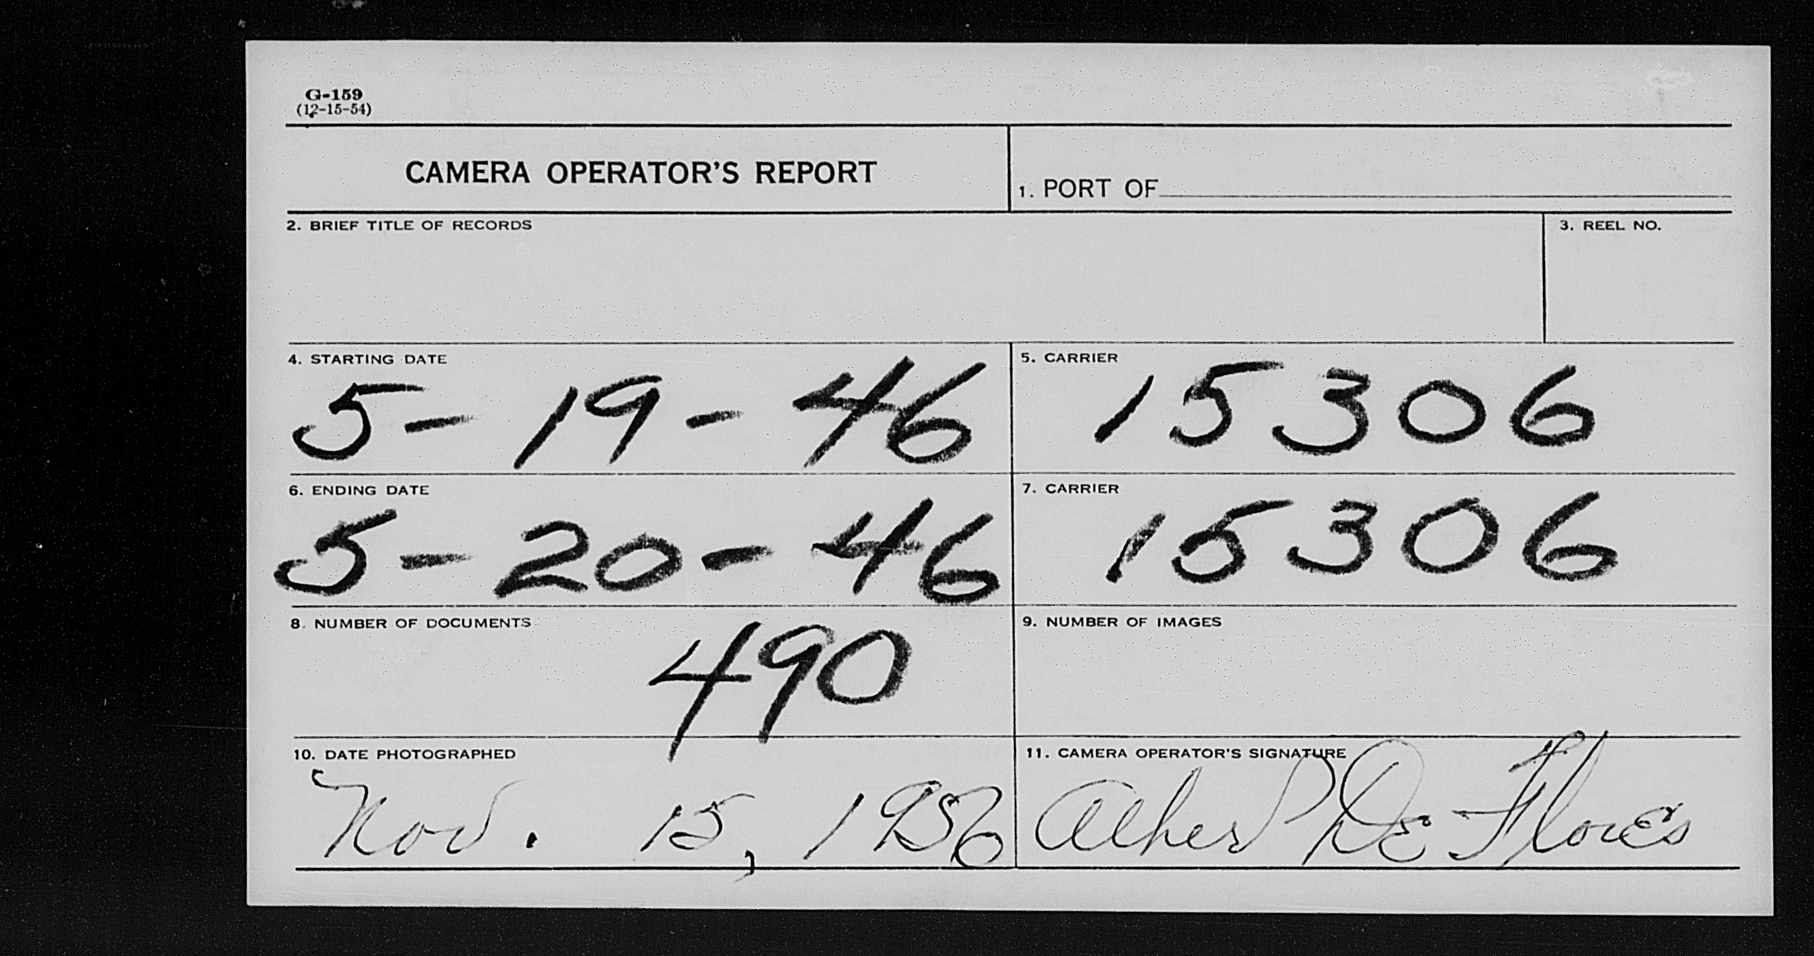 G-159
(12-15-54)
CAMERA OPERATOR'S REPORT
1. PORT OF
2. BRIEF TITLE OF RECORDS
3. REEL NO.
4. STARTING DATE
5-19-46
5. CARRIER
15306
6. ENDING DATE
5-20-46
7. CARRIER
15306
8. NUMBER OF DOCUMENTS
490
9. NUMBER OF IMAGES
10. DATE PHOTOGRAPHED
Nov. 15, 1956
11. CAMERA OPERATOR'S SIGNATURE
De Flores